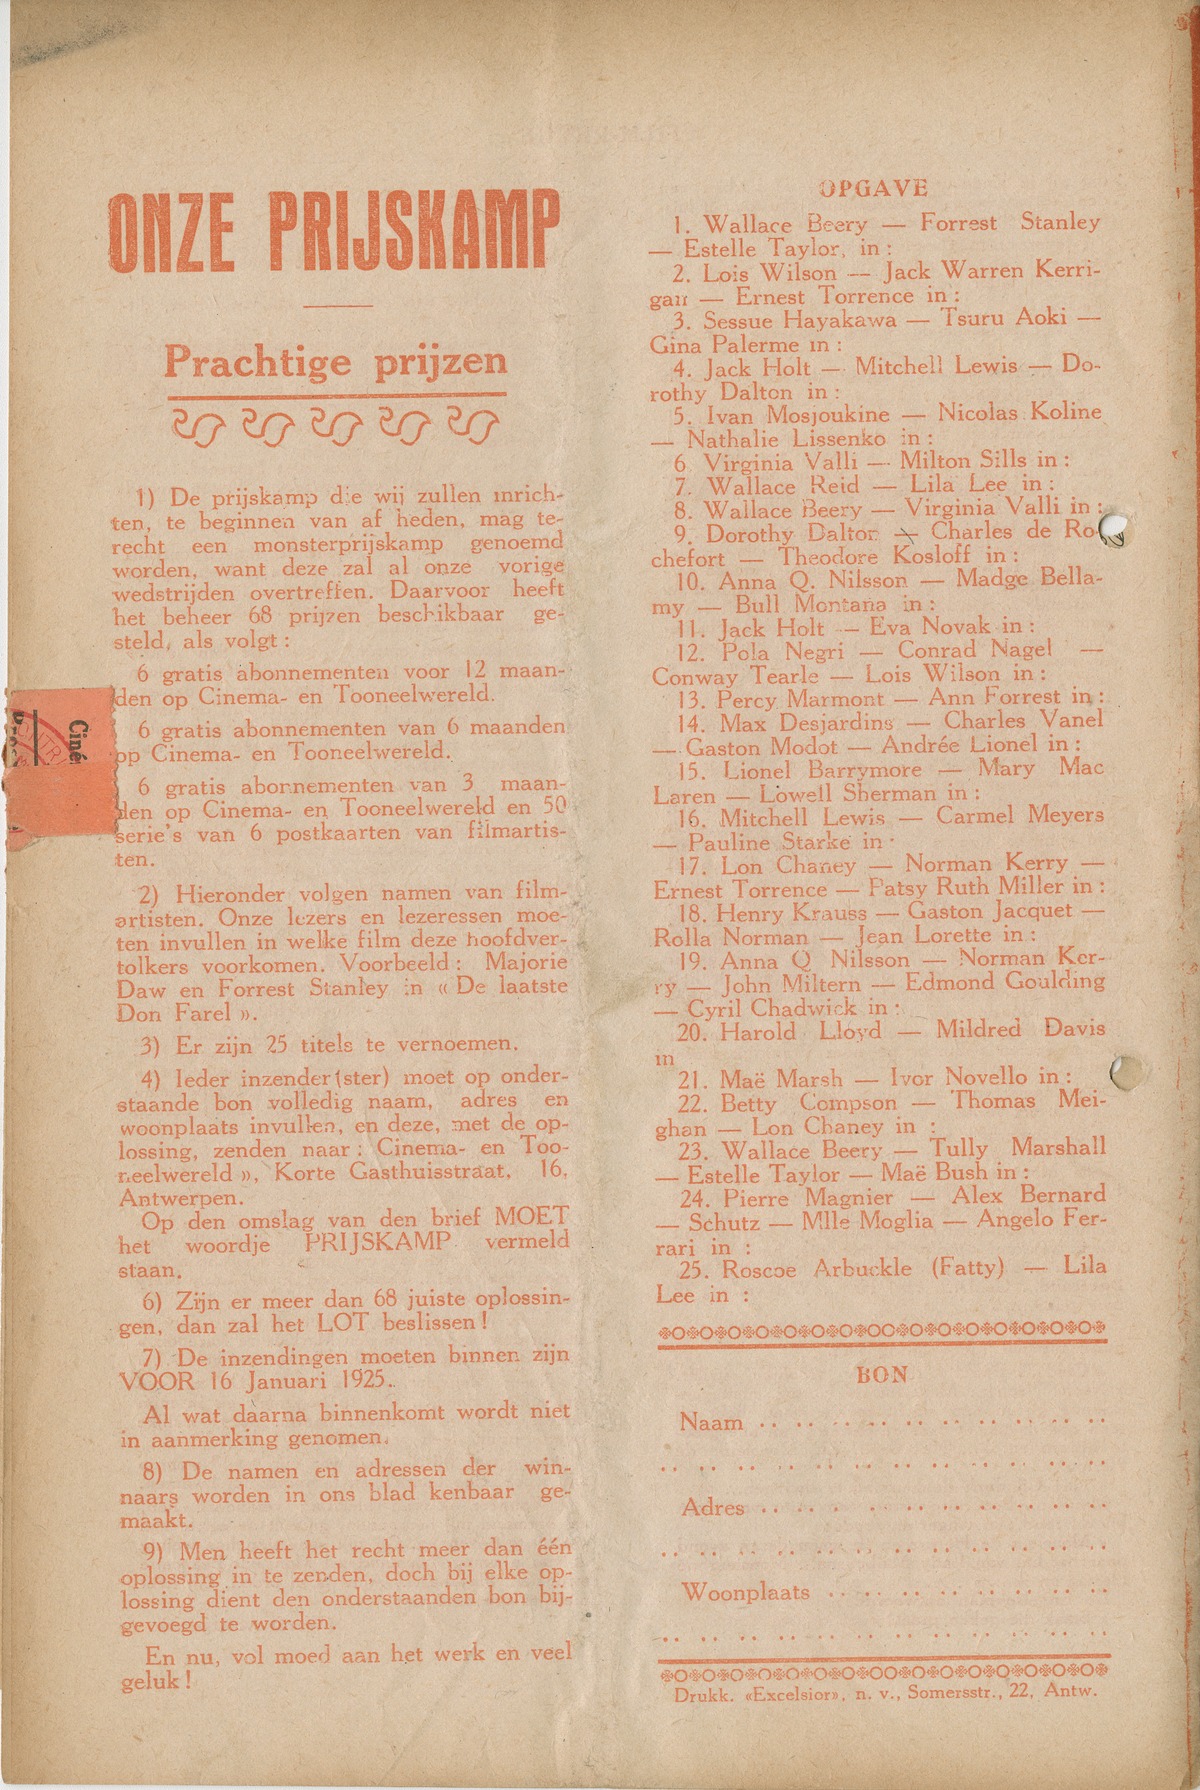 ONZE PRIJSKAMP
Prachtige prijzen
1) De prijskamp die wij zullen inrich-
ten, te beginnen van af heden, mag te-
recht een monsterprijskamp genoemd
worden, want deze zal al onze vorige
wedstrijden overtreffen. Daarvoor heeft
het beheer 68 prijzen beschikbaar ge-
steld, als volgt :
6 gratis abonnementen voor 12 maan-
den op Cinema- en Tooneelwereld.
6 gratis abonnementen van 6 maanden
op Cinema- en Tooneelwereld.
6 gratis abonnementen van 3 maan-
den op Cinema- en Tooneelwereld en 50
serie's van 6 postkaarten van filmartis-
ten.
2) Hieronder volgen namen van film-
artisten. Onze lezers en lezeressen moe-
ten invullen in welke film deze hoofdver-
tolkers voorkomen. Voorbeeld : Majorie
Daw en Forrest Stanley in « De laatste
Don Farel ».
3) Er zijn 25 titels te vernoemen.
4) Ieder inzender(ster) moet op onder-
staande bon volledig naam, adres en
woonplaats invullen, en deze, met de op-
lossing, zenden naar : Cinema- en Too-
neelwereld », Korte Gasthuisstraat, 16,
Antwerpen.
Op den omslag van den brief MOET
het woordje PRIJSKAMP vermeld
staan.
6) Zijn er meer dan 68 juiste oplossin-
gen, dan zal het LOT beslissen !
7) De inzendingen moeten binnen zijn
VOOR 16 Januari 1925.
Al wat daarna binnenkomt wordt niet
in aanmerking genomen.
8) De namen en adressen der win-
naars worden in ons blad kenbaar ge-
maakt.
9) Men heeft het recht meer dan één
oplossing in te zenden, doch bij elke op-
lossing dient den onderstaanden bon bij-
gevoegd te worden.
En nu, vol moed aan het werk en veel
geluk !
Ciné
OPGAVE
1. Wallace Beery — Forrest Stanley
— Estelle Taylor, in :
2. Lois Wilson — Jack Warren Kerri-
gan — Ernest Torrence in :
3. Sessue Hayakawa — Tsuru Aoki —
Gina Palerme in :
4. Jack Holt — Mitchell Lewis — Do-
rothy Dalton in :
5. Ivan Mosjoukine — Nicolas Koline
— Nathalie Lissenko in :
6 Virginia Valli — Milton Sills in :
7. Wallace Reid — Lila Lee in :
8. Wallace Beery — Virginia Valli in :
9. Dorothy Dalton — Charles de Ro-
chefort — Theodore Kosloff in :
10. Anna Q. Nilsson — Madge Bella-
my — Bull Montana in :
11. Jack Holt — Eva Novak in :
12. Pola Negri — Conrad Nagel —
Conway Tearle — Lois Wilson in :
13. Percy Marmont — Ann Forrest in :
14. Max Desjardins — Charles Vanel
— Gaston Modot — Andrée Lionel in :
15. Lionel Barrymore — Mary Mac
Laren — Lowell Sherman in :
16. Mitchell Lewis — Carmel Meyers
— Pauline Starke in :
17. Lon Chaney — Norman Kerry —
Ernest Torrence — Patsy Ruth Miller in :
18. Henry Krauss — Gaston Jacquet —
Rolla Norman — Jean Lorette in :
19. Anna Q Nilsson — Norman Ker-
ry — John Miltern — Edmond Goulding
— Cyril Chadwick in :
20. Harold Lloyd — Mildred Davis
in
21. Maë Marsh — Ivor Novello in :
22. Betty Compson — Thomas Mei-
ghan — Lon Chaney in :
23. Wallace Beery — Tully Marshall
— Estelle Taylor — Maë Bush in :
24. Pierre Magnier — Alex Bernard
— Schutz — Mlle Moglia — Angelo Fer-
rari in :
25. Roscoe Arbuckle (Fatty) — Lila
Lee in :
BON
Naam
Adres
Woonplaats
Drukk. «Excelsior», n. v., Somersstr., 22, Antw.